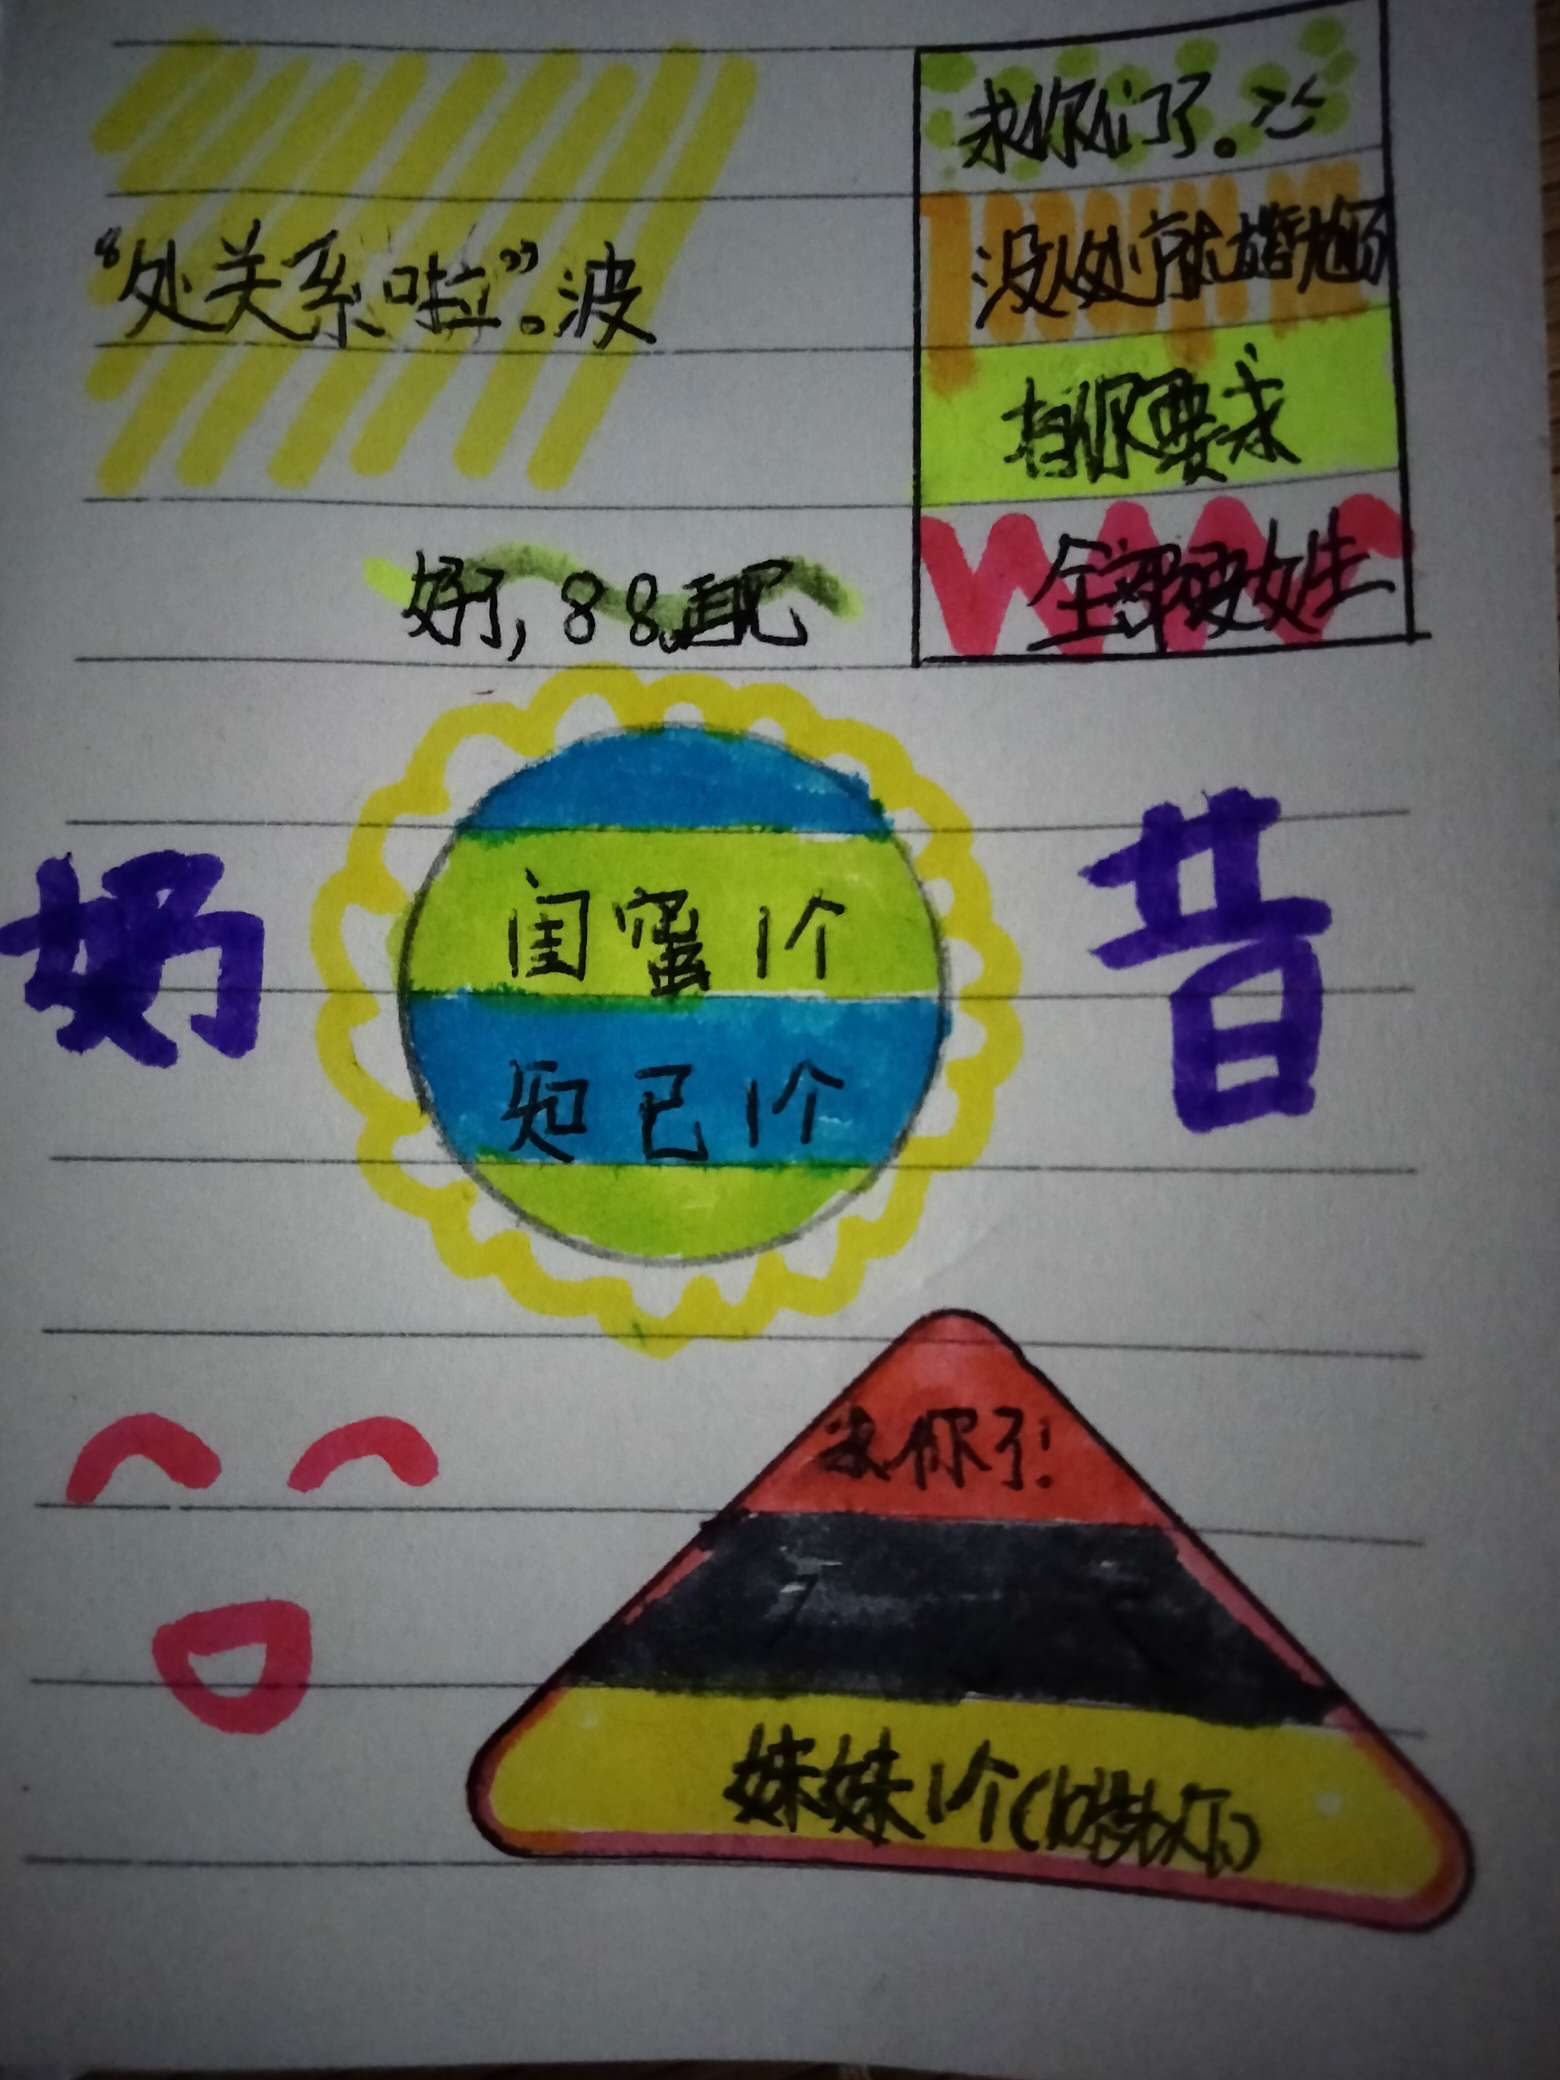 “处关系啦”。波
求你们了。
没人处就尴尬
有你要求
全部要女生
好了,88
奶 昔
闺蜜1个
知己1个
求你了!
妹妹1个